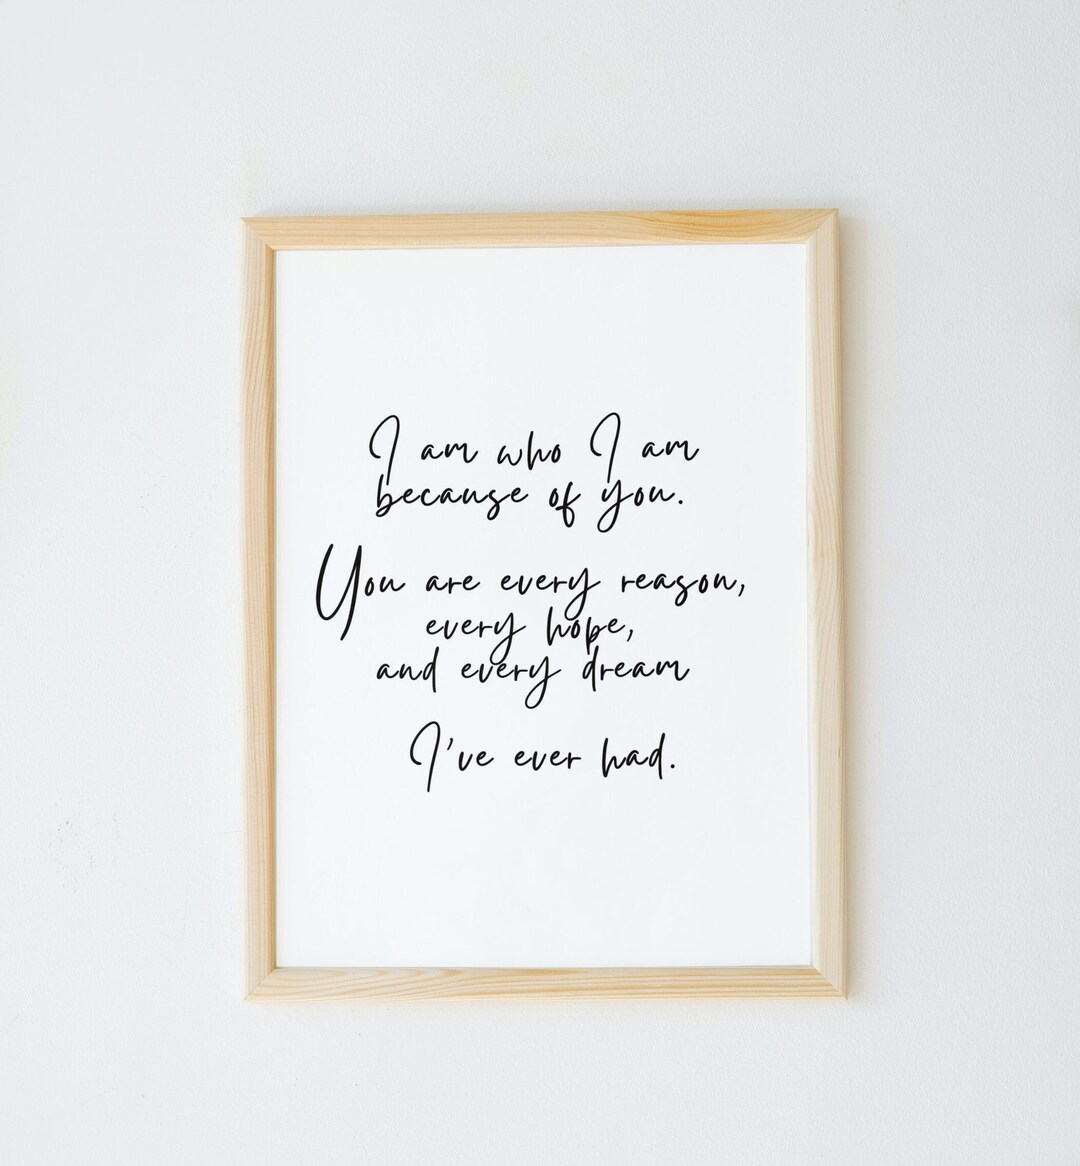 I am who I am
because of you.
You are every reason,
every hope,
and every dream
I've ever had.